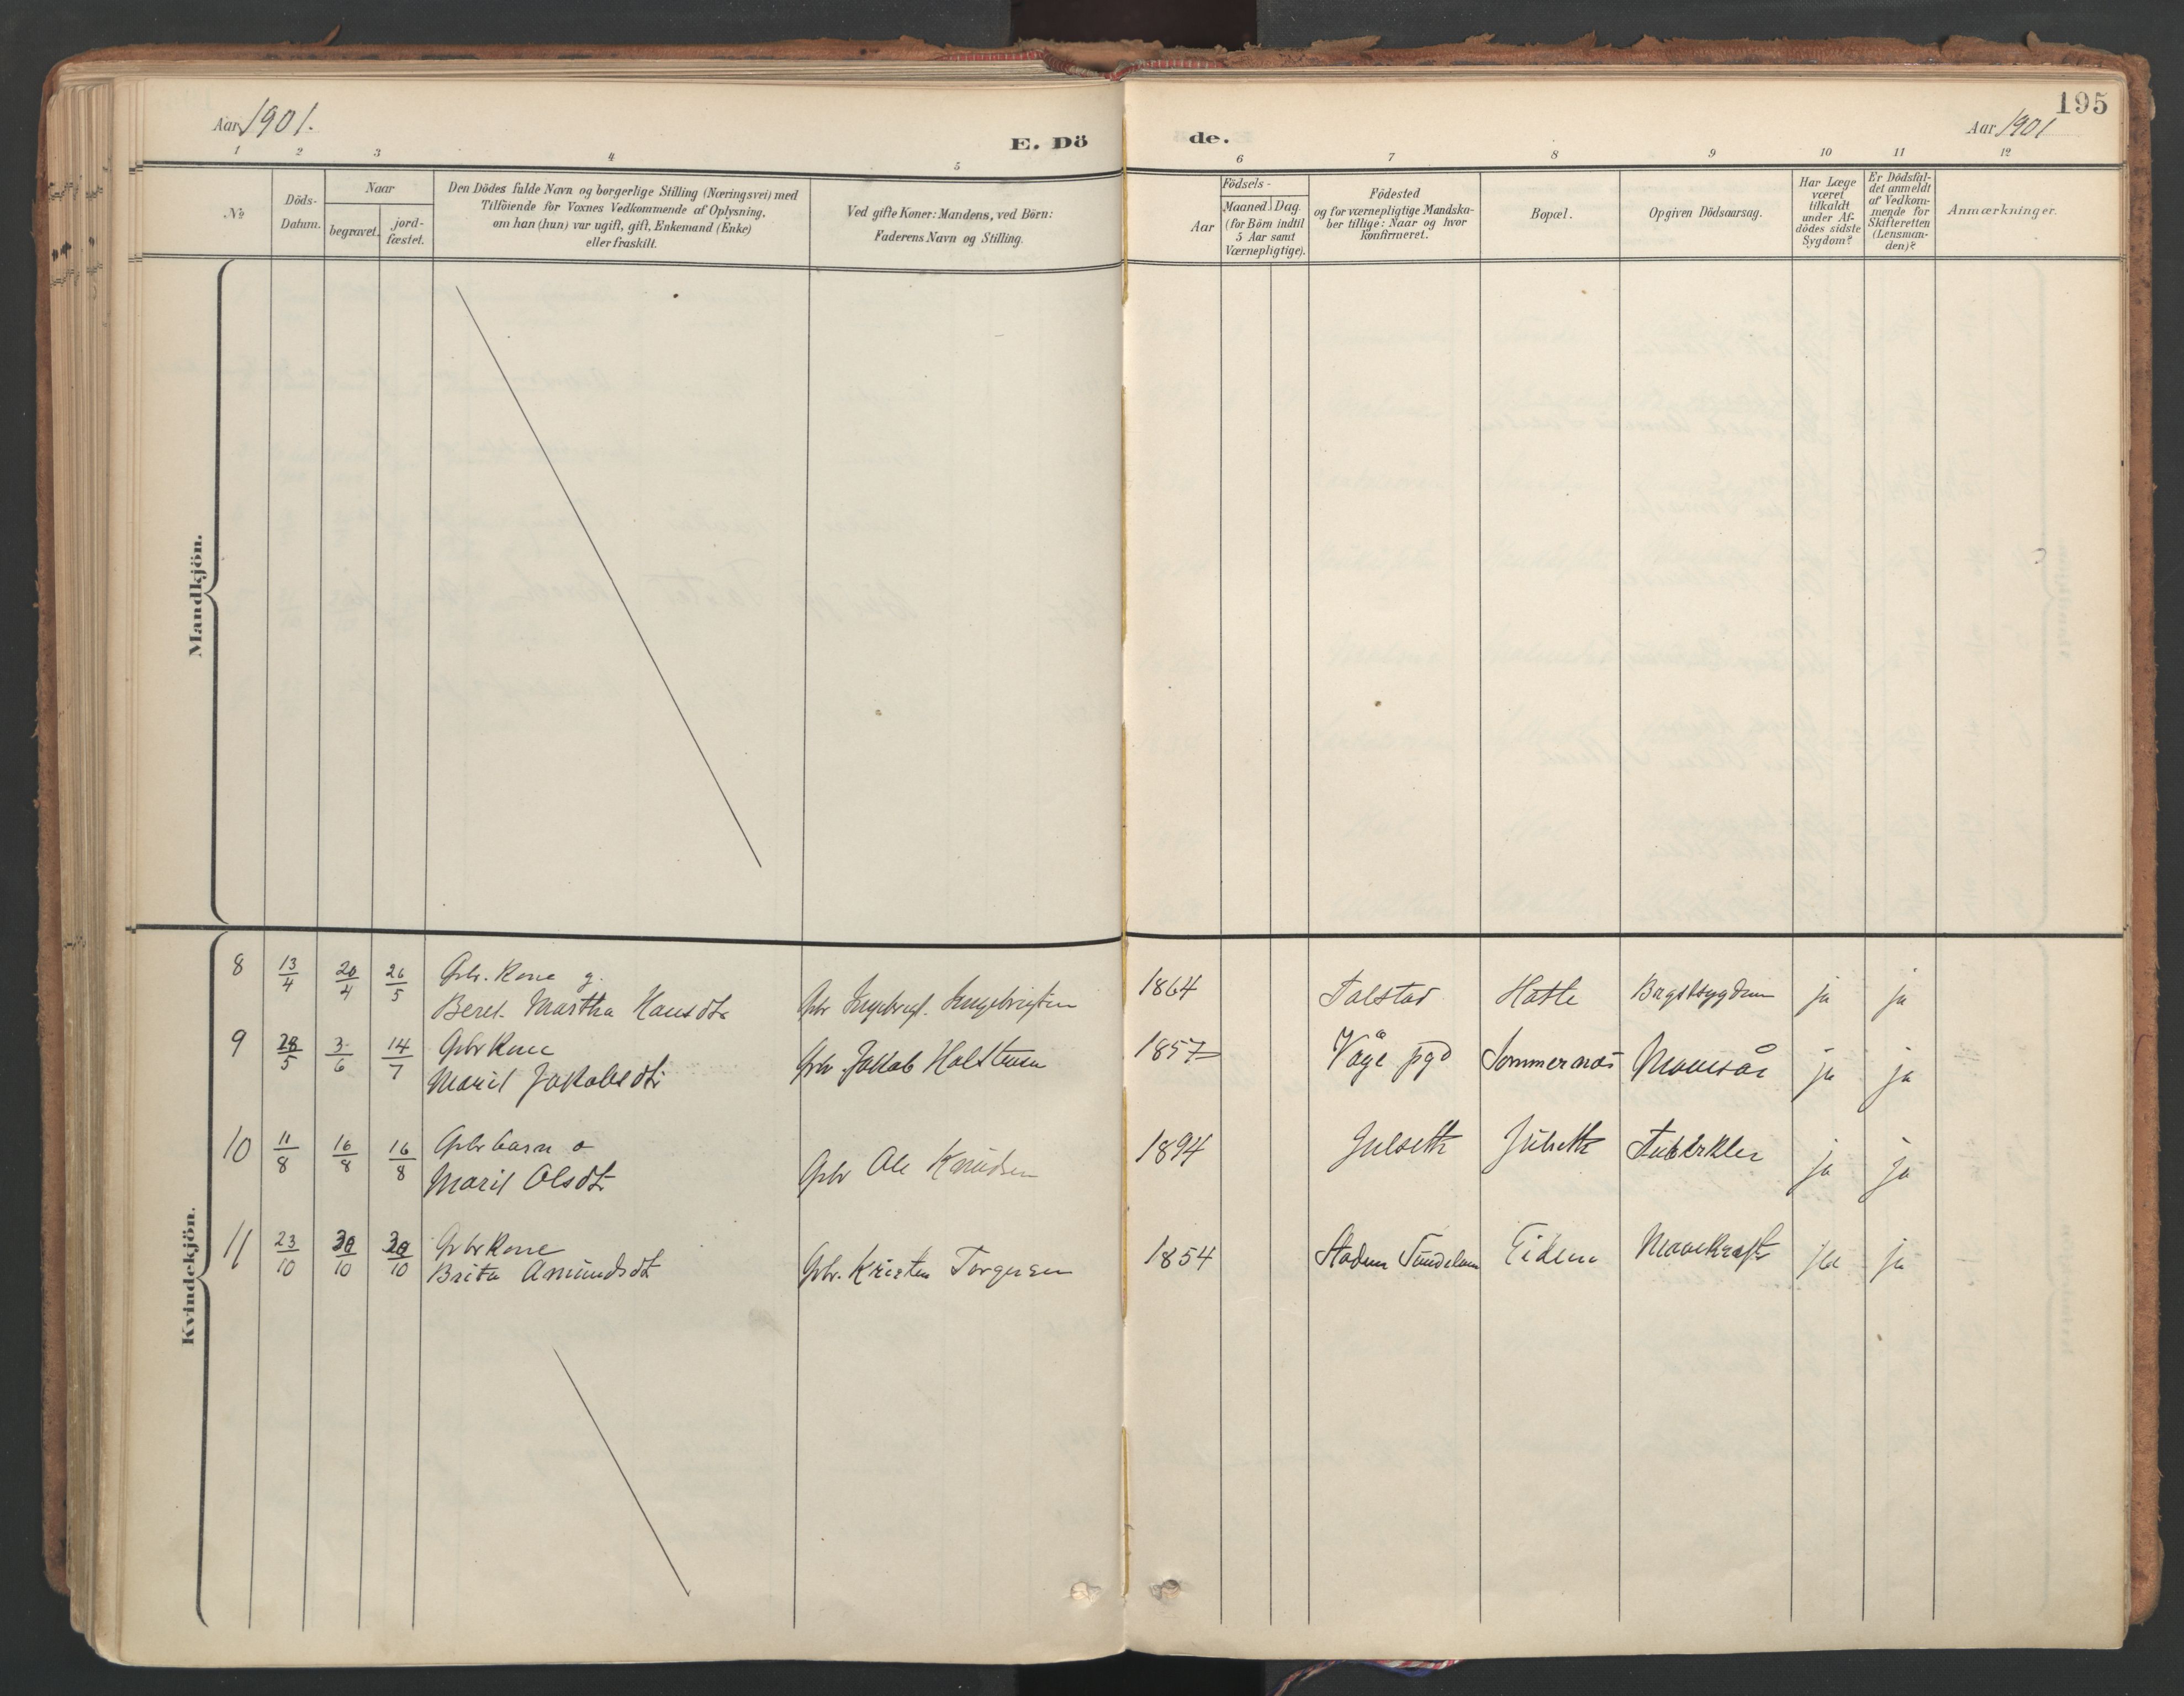 195
Aar 1901.
E. Dö
de.
Aar 1901
1 2 3 4 5 6 7 8 9 10 11 12
№
Döds-
Datum.
Naar
begravet.
jord-
fæstet.
Den Dödes fulde Navn og borgerlige Stilling (Næringsvei) med
Tilföiende for Voxnes Vedkommende af Oplysning,
om han (hun) var ugift, gift, Enkemand (Enke)
eller fraskilt.
Ved gifte Koner: Mandens, ved Börn:
Faderens Navn og Stilling.
Födsels-
Aar
Maaned. Dag.
(for Börn indtil
5 Aar samt
Værnepligtige).
Födested
og for værnepligtige Mandska-
ber tillige: Naar og hvor
konfirmeret.
Bopæl.
Opgiven Dödsaarsag.
Har Læge
været
tilkaldt
under Af-
dödes sidste
Sygdom?
Er Dödsfal-
det anmeldt
af Vedkom-
mende for
Skifteretten
(Lensman-
den)?
Anmærkninger.
Mandkjön.
Kvindekjön.
8 13/4 20/4 26/5 Gbr. Kone g.
Beret Martha Hansdt. Gbr Ingebrigt. Ingebrigtsen 1864 Talstad Hatle Brystsygdom ja ja
9 28/5 3/6 14/7 Gbr Kone
Marit Jakobsdt. Gbr Jakob Halstensen 1857 Våge pgd Sommernæs Mavesår ja ja
10 11/8 16/8 16/8 Gbr barn
Marit Olsdt. Gbr Ole Knudsen 1894 Julseth Julseth Tuberkler ja ja
11 23/10 30/10 30/10 Gbr Kone
Brita Amundsdt Gbr. Kristen Torgersen 1854 Eidem Mavekræft ja ja